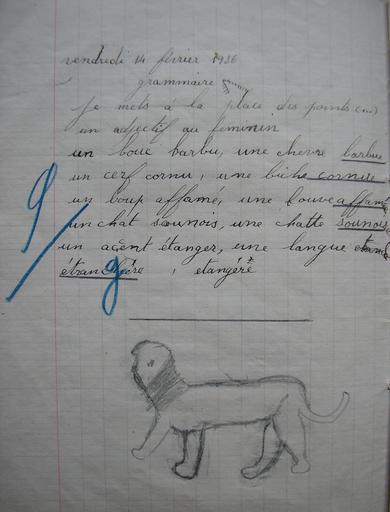 vendredi 14 février 1936
grammaire
Je mets à la place des points (...)
un adjectif au feminin
un bouc barbu, une chevre barbue
un cerf cornu, une biche cornue
un loup affamé, une louve affamé
un chat sounois, une chatte sounois
un acent étanger, une langue
étrangère, etangère
9
g